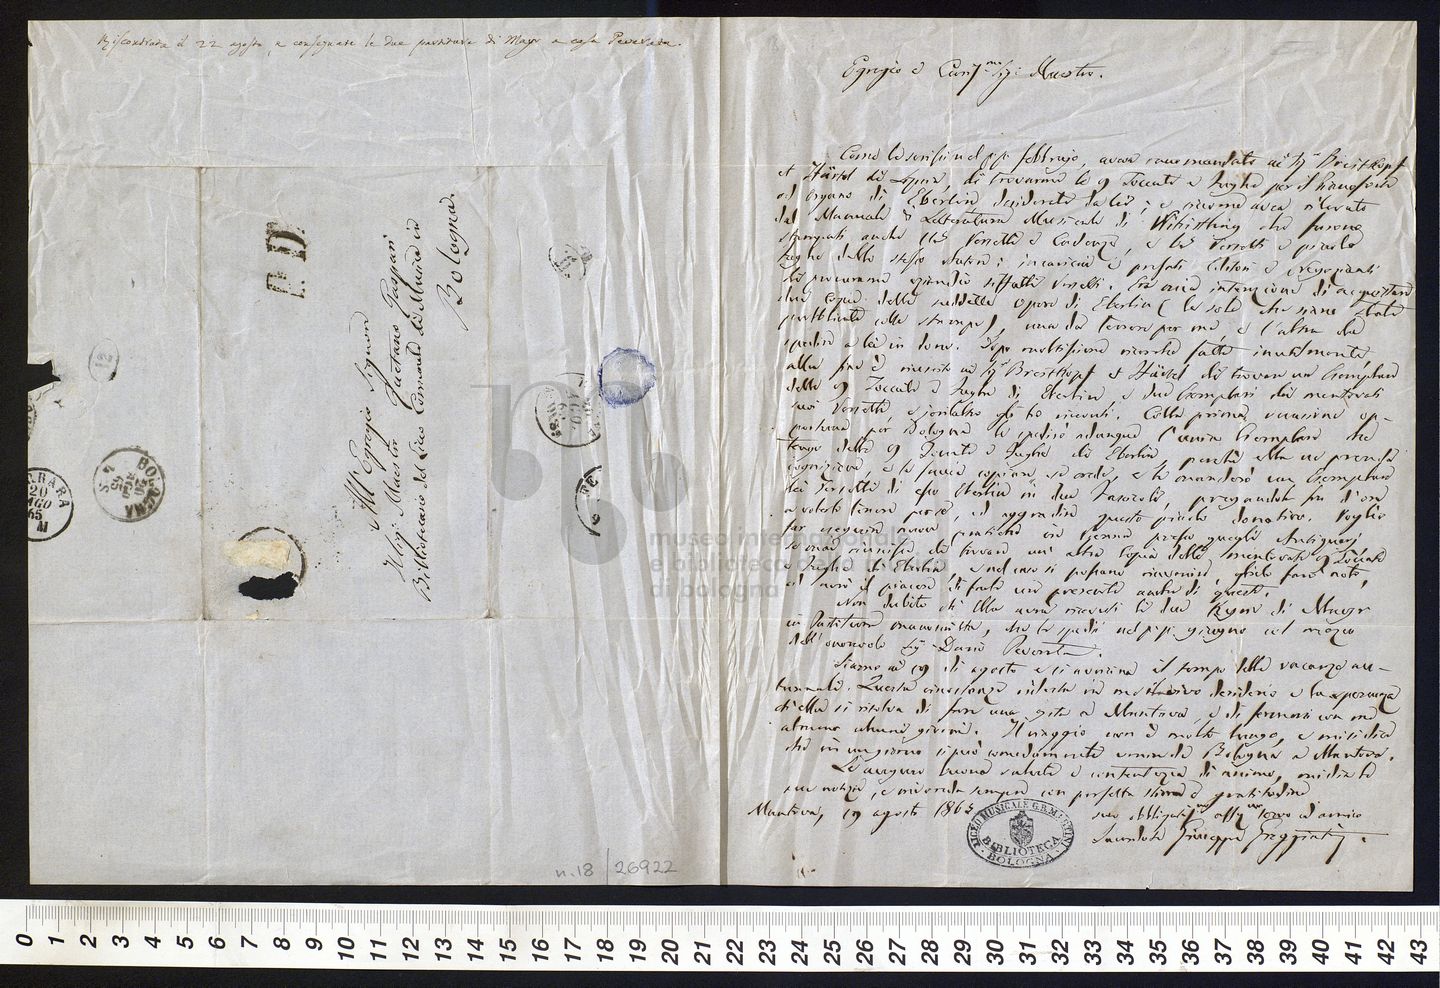 Riscontrata il 22 agosto, e consegnate le due partiture di Mayr a casa Peverata.
P.D.
All' Egregio Signore
Il Sig: Maestro Gaetano Gaspari
Bibliotecario del Liceo Comunale di Musica in
Bologna.
BOLOGNA
20
AGO
65
M
n. 18 / 26922
museo internazionale
e biblioteca della musica
di bologna
Egregio e Cariss.mo Sig: Maestro.
Come le scrissi nel p.p. febbrajo, aveva raccomandato ai Sig.ri Breitkopf
et Härtel di Lipsia, di trovarmi le 9 Toccate e Fughe per il Pianoforte
od Organo di Eberlin desiderate da Lei; e siccome aveva rilevato
dal Manuale di Letteratura Musicale di Whistling che furono
stampati anche Versetti e Cadenze, e Versetti e piccole
fughe dello stesso autore; incaricai i prefati Editori e Negozianti
di procurarmi eziandio siffatti Versetti. Era mia intenzione di acquistare
due copie delle suddette opere di Eberlin (le sole che siano state
pubblicate colle stampe), una da tenere per me, e l'altra da
spedire a Lei in dono. Dopo moltissime ricerche fatte inutilmente
alla fine è riuscito ai Sig.ri Breitkopf et Härtel di trovare un Esemplare
delle 9 Toccate e Fughe di Eberlin, e due Esemplari dei mentovati
suoi Versetti, e jerl'altro gli ho ricevuti. Colla prima occasione op-
portuna per Bologna le spedirò adunque l'unico Esemplare che
tengo delle 9 Toccate e Fughe di Eberlin, perchè ella ne prenda
cognizione, e le faccia copiare se crede, e le manderò un Esemplare
dei Versetti di esso Eberlin in due Fascicoli, pregandola fin d'ora
a volerli tenere per sè, ed aggradire questo piccolo donativo. Voglio
far eseguire nuove pratiche in Vienna presso quegli Antiquarj
se mai riuscisse di trovare un'altra copia delle mentovate 9 Toccate
e Fughe di Eberlin, e nel caso si possano rinvenire, glielo farò noto,
ed avrò il piacere di farle un presente anche di queste.
Non dubito che Ella avrà ricevuti li due Kyrie di Mayr
in Partitura manoscritta, che le spedii nel p.p. giugno col mezzo
dell'onorevole Sig. Dario Peverata.
Siamo ai 19 di agosto e si avvicina il tempo delle vacanze au-
tunnali. Questa circostanza ridesta in me il vivo desiderio e la speranza
che ella si risolva di fare una gita a Mantova, e di fermarsi con me
almeno alcuni giorni. Il viaggio non è molto lungo, e mi si dice
che in un giorno si può comodamente venire da Bologna a Mantova.
Le auguro buona salute e contentezza di animo, mi dia le
sue notizie, e mi creda sempre con perfetta stima e gratitudine
Mantova, 19 agosto 1865
suo obbligatis.mo affez.mo servo ed amico
Sacerdote Giuseppe Greggiati.
LICEO MUSICALE G.B. MARTINI
BIBLIOTECA
BOLOGNA
0 1 2 3 4 5 6 7 8 9 10 11 12 13 14 15 16 17 18 19 20 21 22 23 24 25 26 27 28 29 30 31 32 33 34 35 36 37 38 39 40 41 42 43